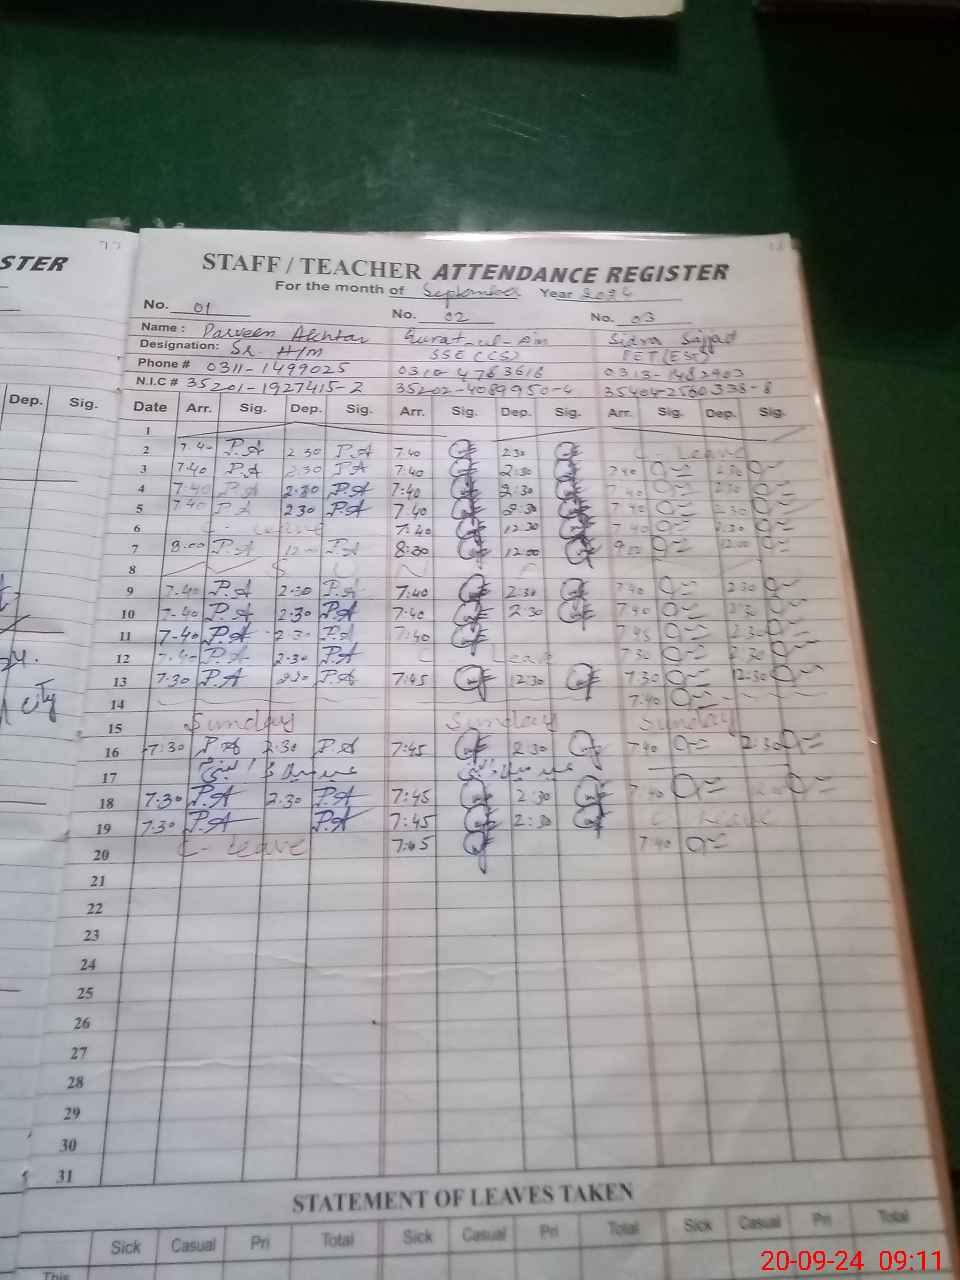 STER
STAFF / TEACHER ATTENDANCE REGISTER
For the month of September Year
No. 01 No. 02 No. 03
Name : Parveen Akhtar Qurat-ul-Ain Sidra Sajjad
Designation: Sr. H/M SSE (CS)
Phone # 0311-1499025
N.I.C # 35201-1927415-2
Dep. Sig. Date Arr. Sig. Dep. Sig. Arr. Sig. Dep. Sig. Arr. Sig. Dep. Sig.
1
2 7.40 P.A 2 30 P.A 7.40 2.30 C- Leave
3 7.40 P.A 2.30 P.A 7:40 2:30 7.40 2.30
4 7:40 P.A 2.30 P.A 7:40 2:30 7.40 2.30
5 7.40 P.A 2.30 P.A 7.40 2.30 7.40 2.30
6 C- Leave 7:40 12.30 7.40
7 8.00 P.A P.A 8:30 12:00 12.00
8
9 7.40 P.A 2.30 P.A 7:40 2:30 7.40 2.30
10 7-40 P.A 2.30 P.A 7:40 2:30 7.40 2.30
11 7-40 P.A 2.30 P.A 7:40 7.45 2.30
12 7.40 P.A 2.30 P.A C Leave 7.30 2.30
13 7:30 P.A P.A 7:45 12:30 7.30 12:30
14 7.40
15 Sunday Sunday Sunday
16 7:30 P.A 2.30 P.A 7:45 2:30 7.40 2.30
17 عید میلاد النبی عید میلاد النبی
18 7.30 P.A 2.30 P.A 7:45 2:30 7.40
19 7.30 P.A P.A 7:45 2:30 C Leave
20 C- Leave 7:45 7:40
21
22
23
24
25
26
27
28
29
30
31
city
STATEMENT OF LEAVES TAKEN
Sick Casual Pri Total Sick Casual Pri Total Sick Casual Pri Total
This
20-09-24 09:11